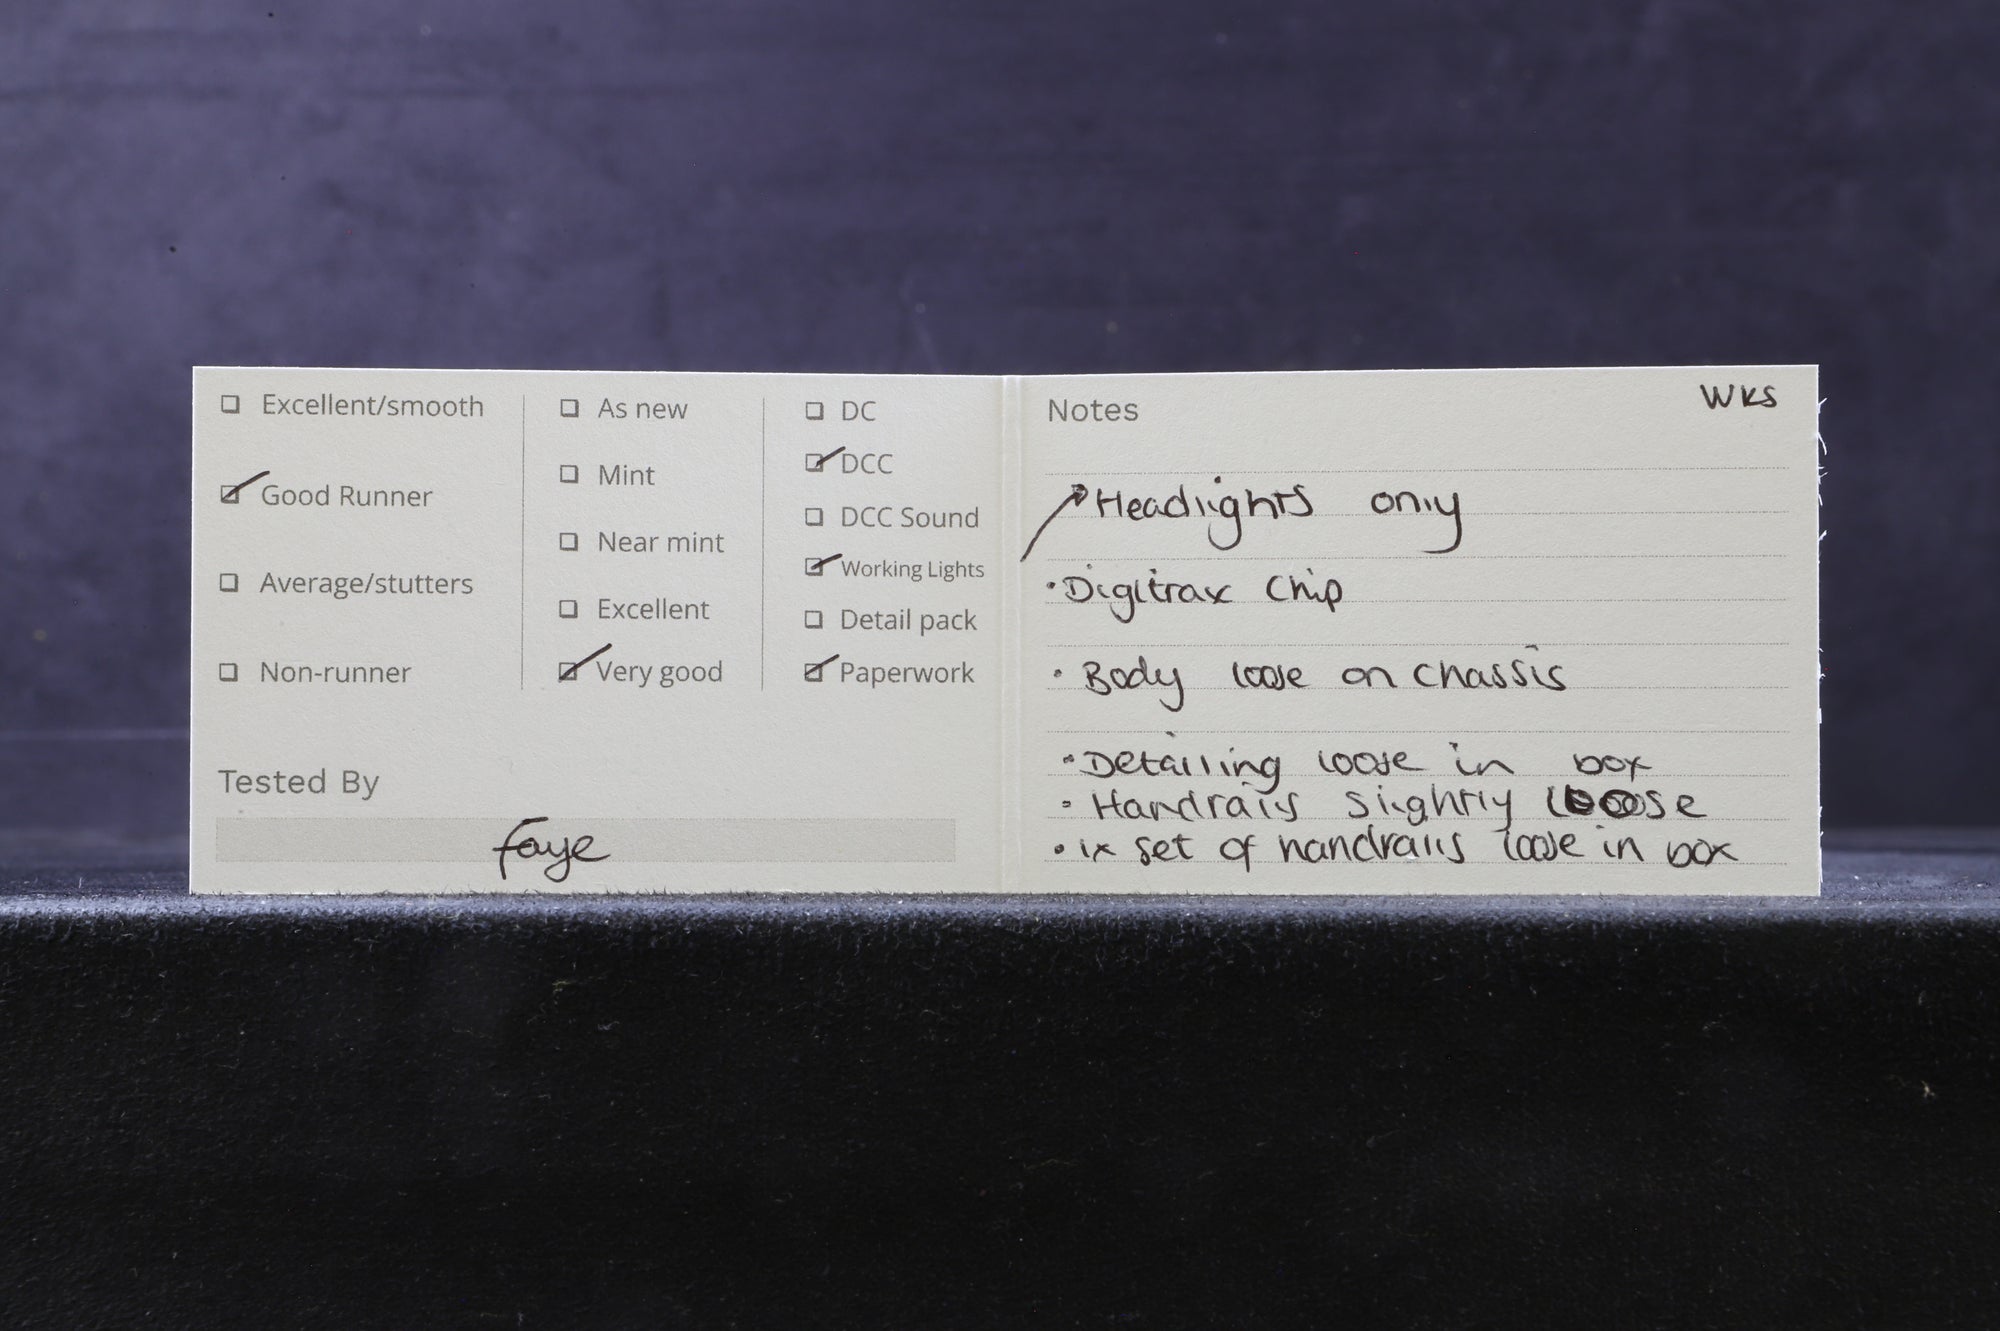 Excellent/smooth
Good Runner
Average/stutters
Non-runner
As new
Mint
Near mint
Excellent
Very good
DC
DCC
DCC Sound
Working Lights
Detail pack
Paperwork
Tested By
Faye
Notes
WKS
Headlights only
• Digitrax Chip
• Body loose on chassis
• Detailing loose in box
• Handrails slightly loose
• 1x set of handrails loose in box